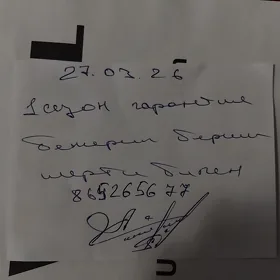 27.03.26
1 сезон гарантия
бежерип берип
шерти билен
865265677